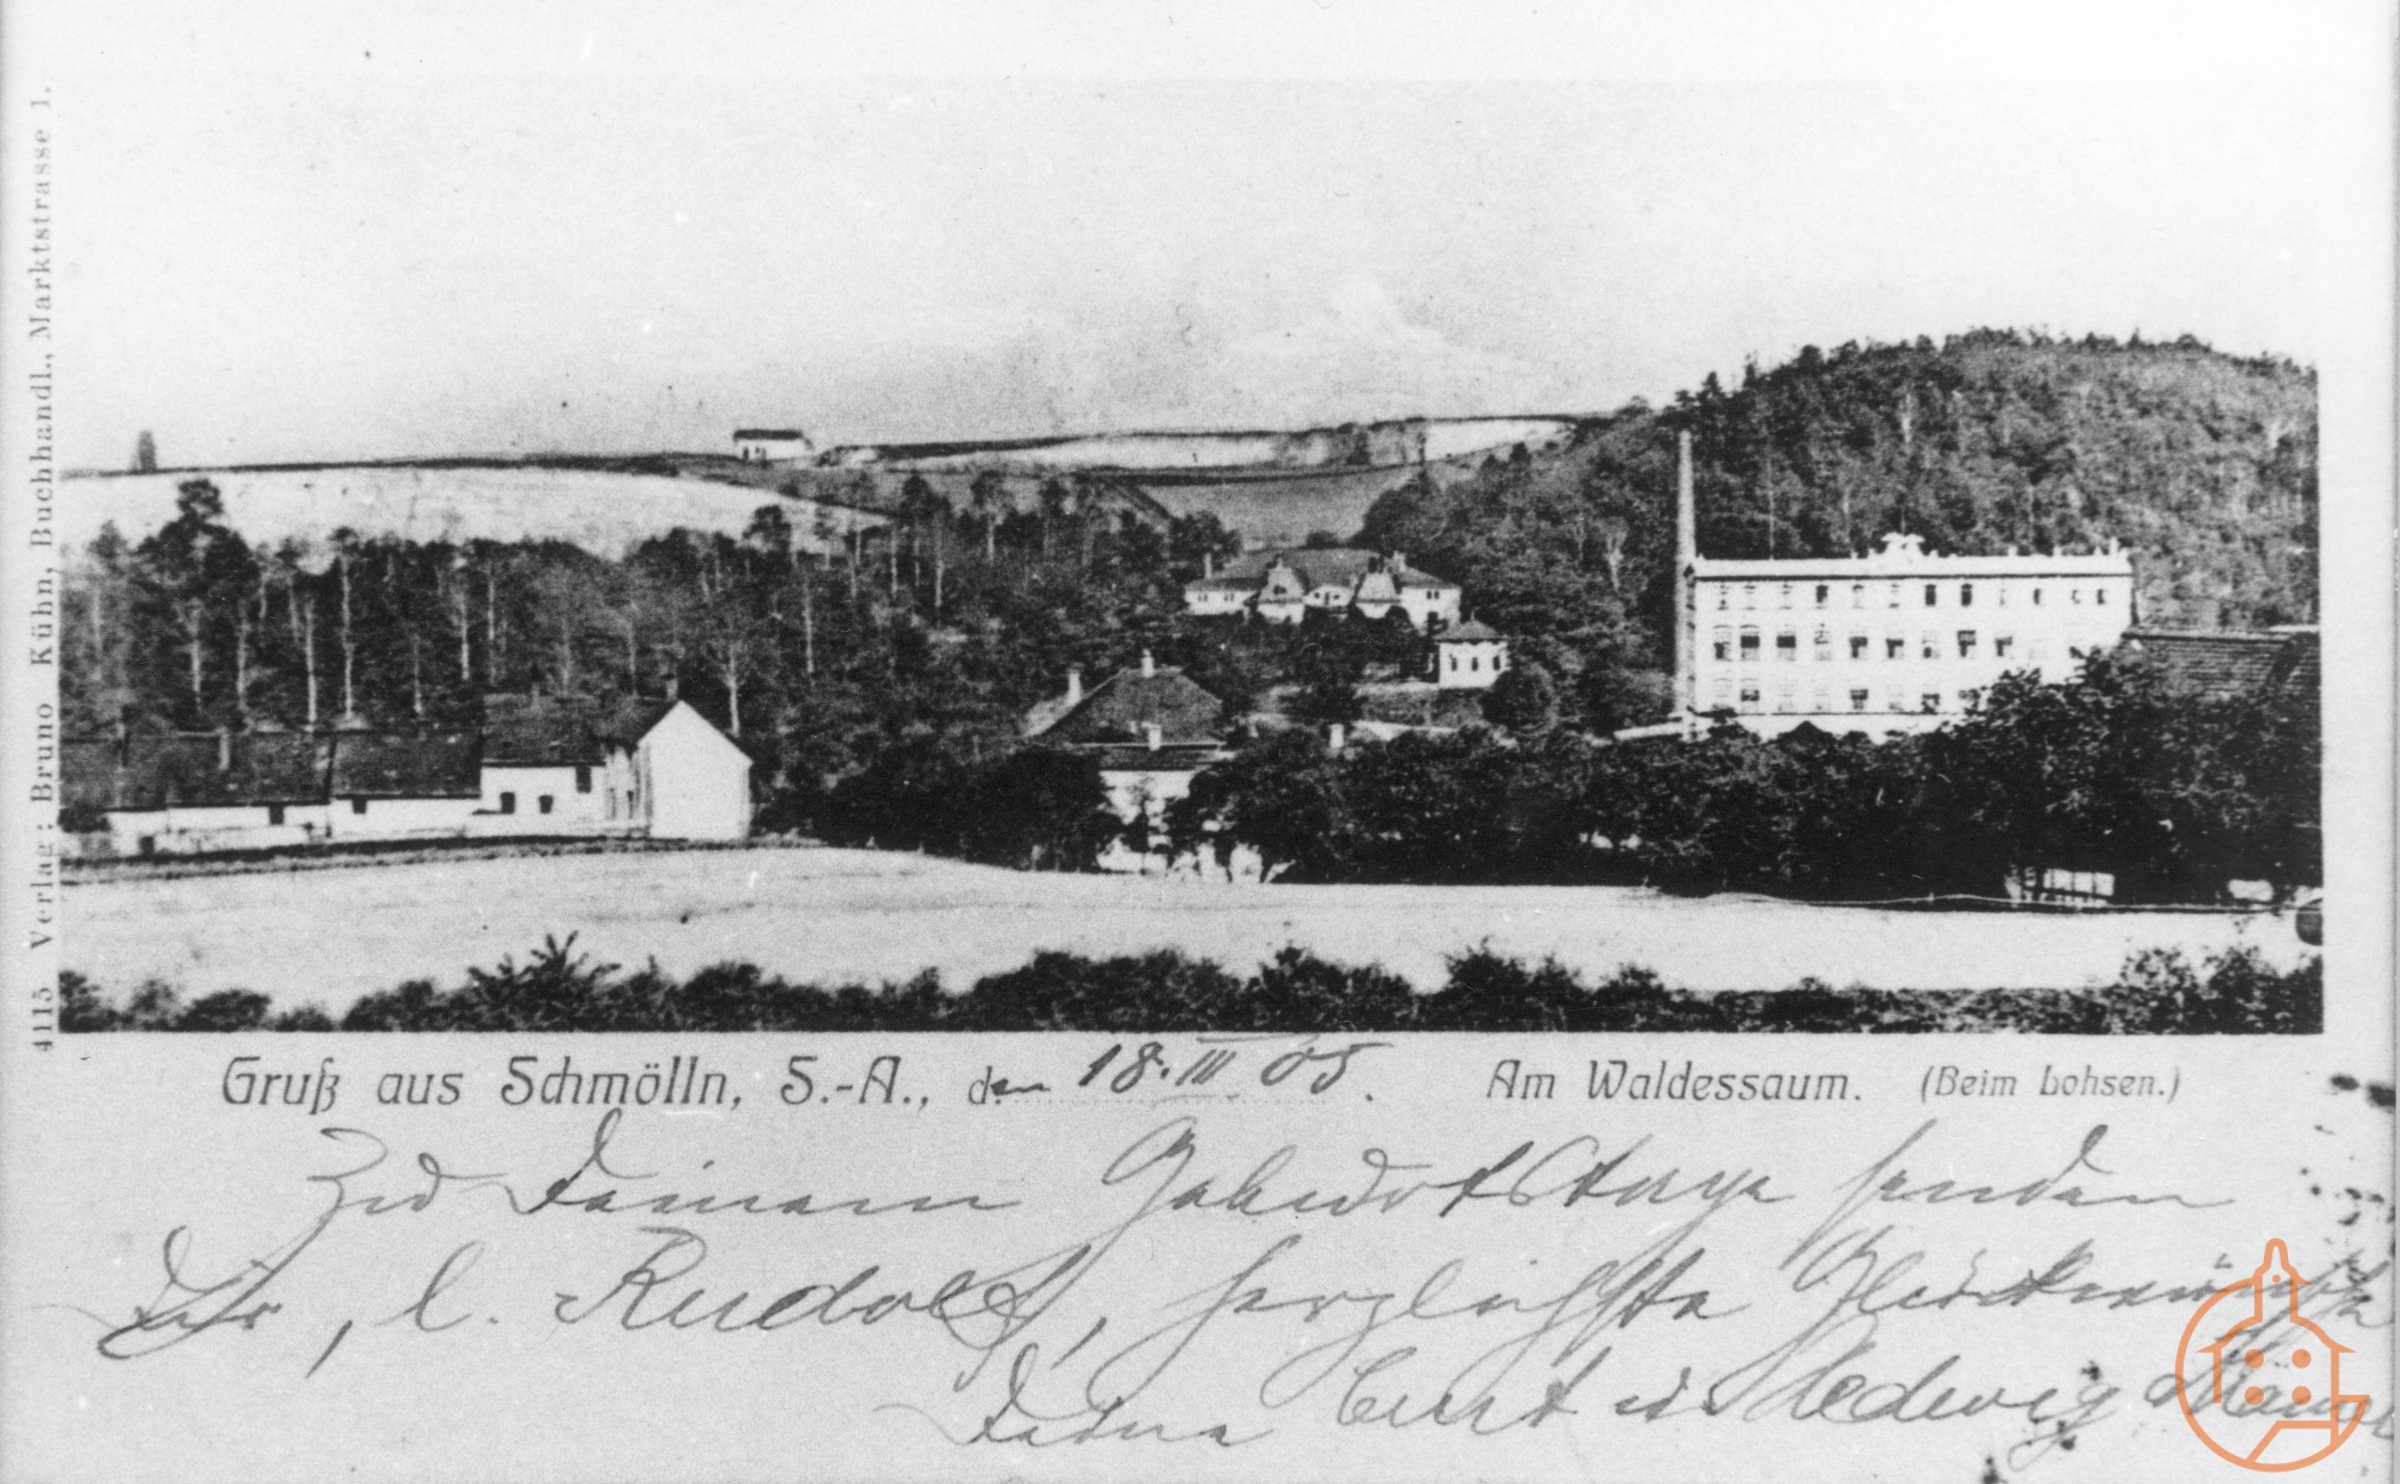 4115 Verlag: Bruno Kühn, Buchhandl., Marktstrasse 1.
Gruß aus Schmölln, S.-A., den 18. III 05. Am Waldessaum. (Beim Lohsen.)
Zu Deinem Geburtstage senden
Dir, l. Rudolf, herzlichste Glückwünsche
Deine Curt u. Hedwig